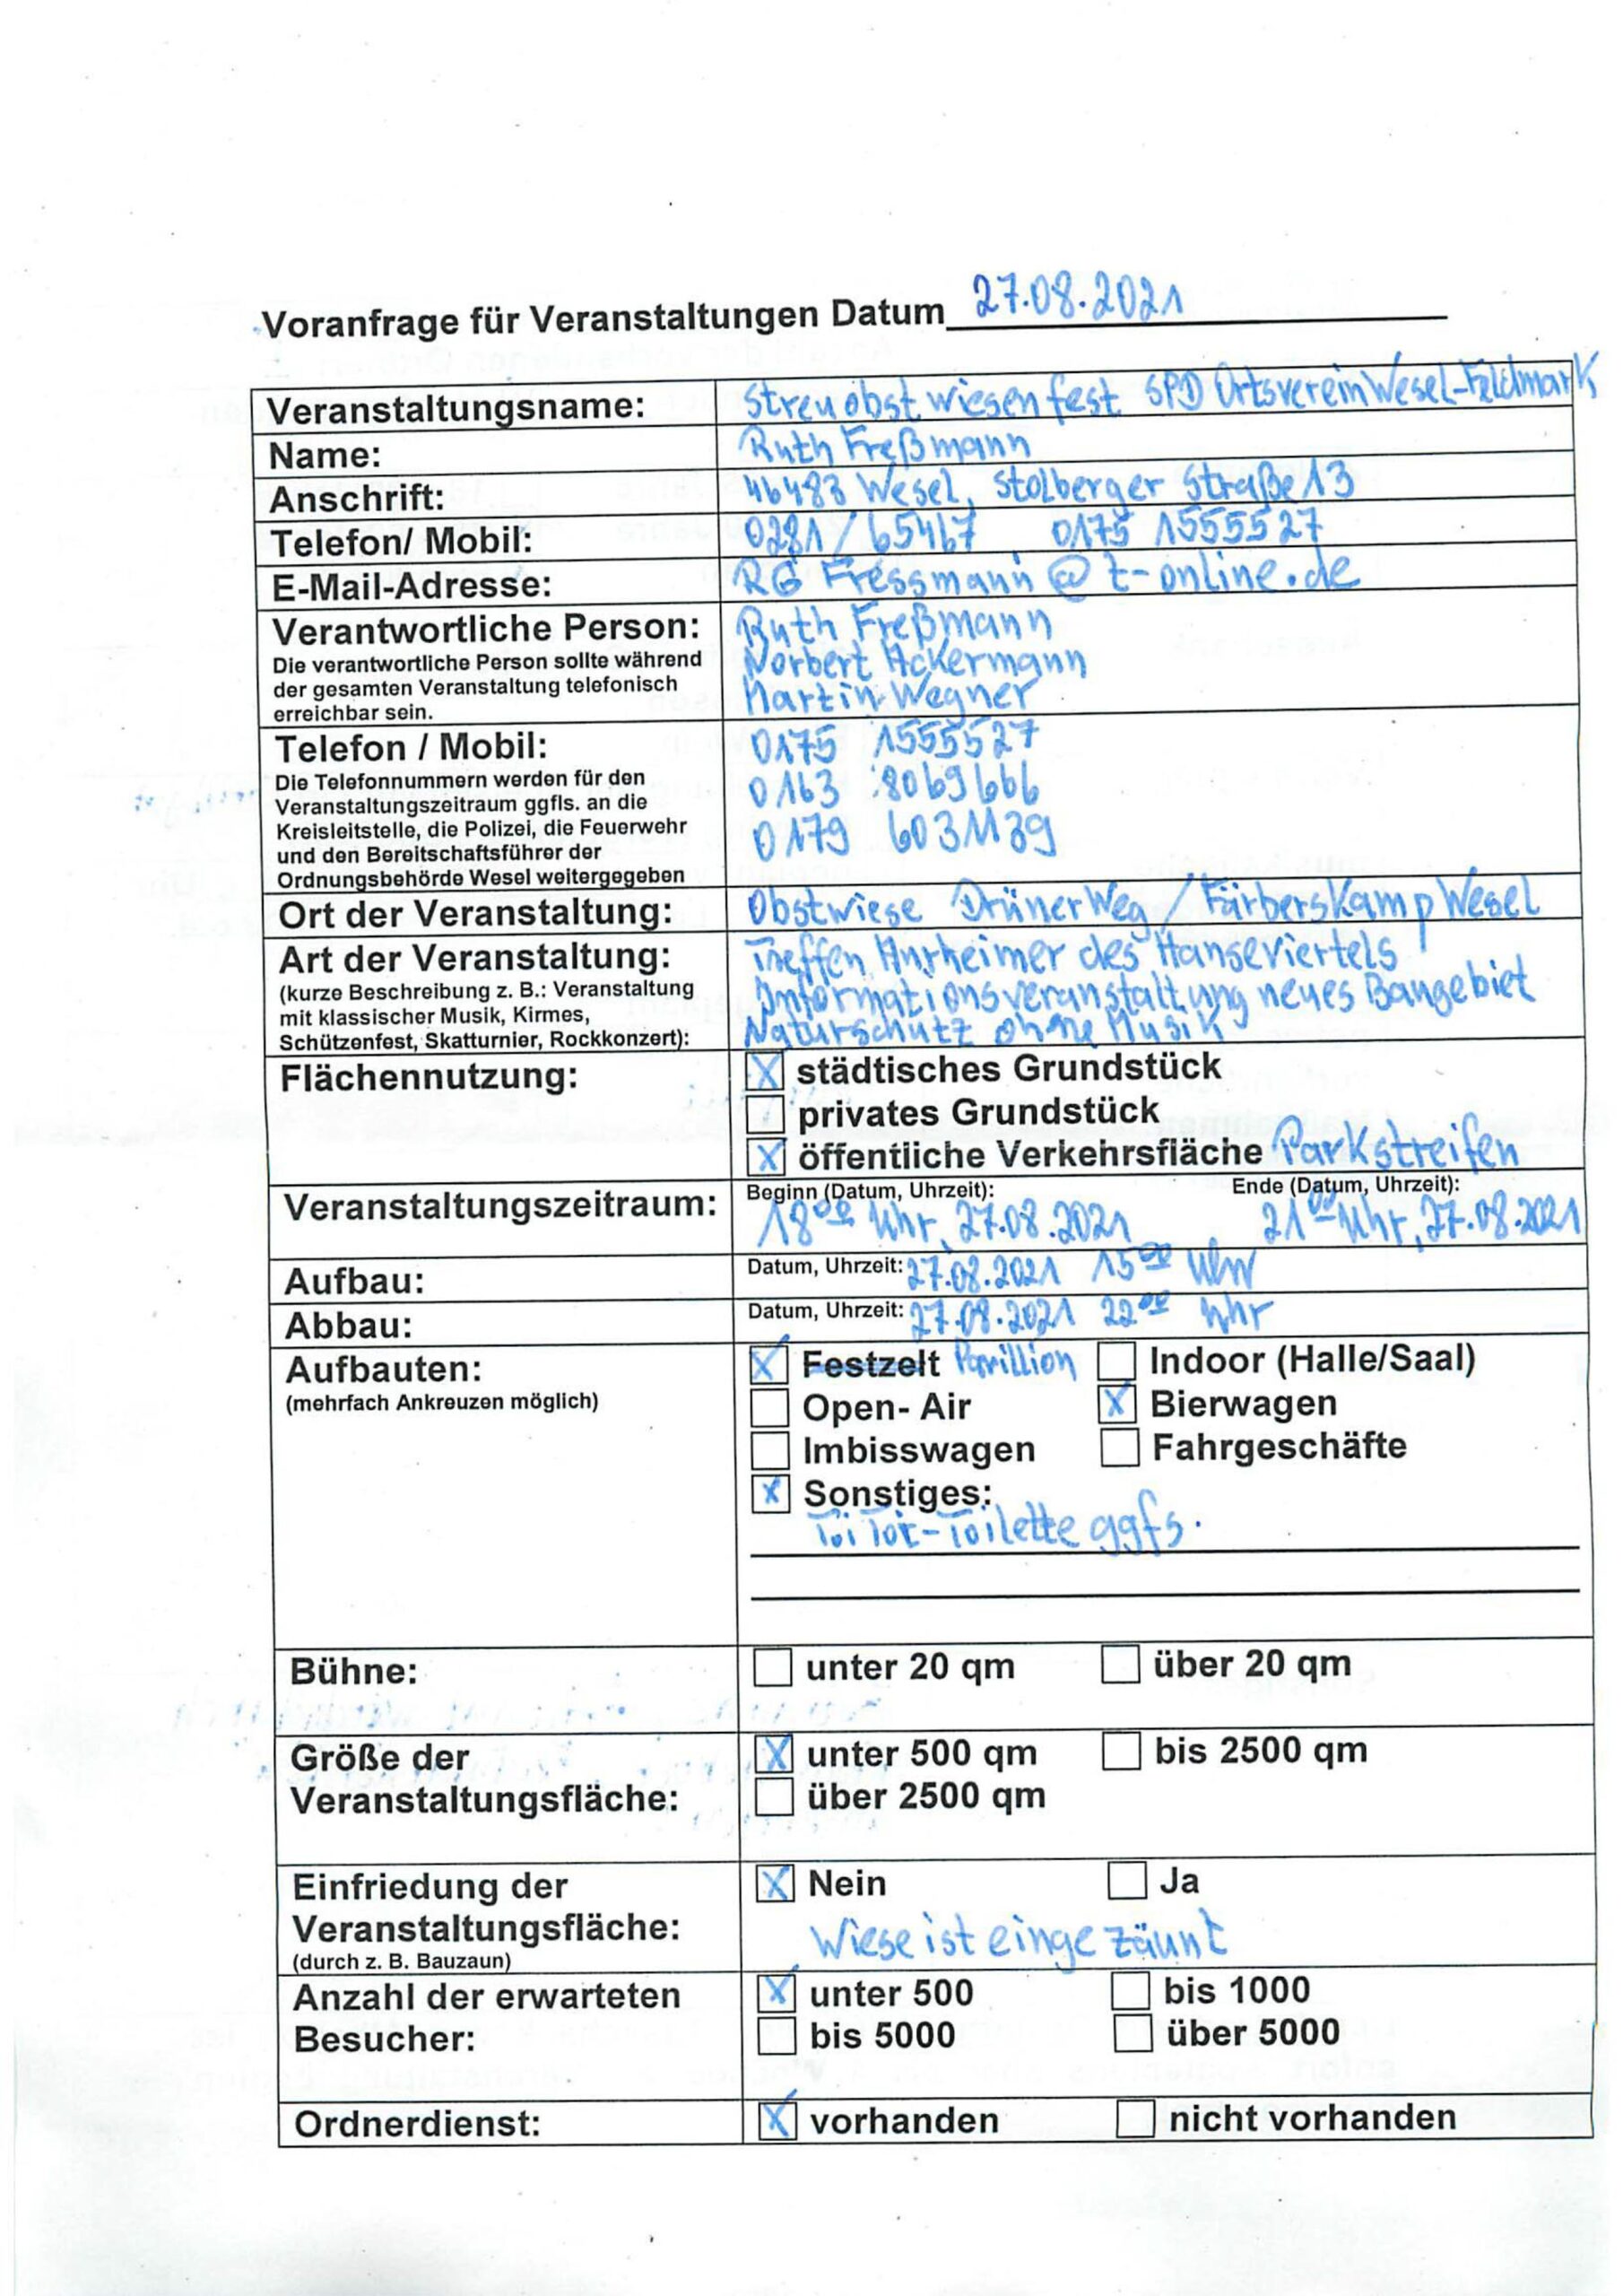 Voranfrage für Veranstaltungen Datum 27.08.2021
Veranstaltungsname: Streuobstwiesenfest SPD Ortsverein Wesel-Feldmark
Name: Ruth Freßmann
Anschrift: 46483 Wesel, Stolberger Straße 13
Telefon/ Mobil: 0281/65467 0175 1555527
E-Mail-Adresse: RG Fressmann @ t-online.de
Verantwortliche Person: Ruth Freßmann
Die verantwortliche Person sollte während Norbert Ackermann
der gesamten Veranstaltung telefonisch Martin Wegner
erreichbar sein.
Telefon / Mobil: 0175 1555527
Die Telefonnummern werden für den 0163 8069666
Veranstaltungszeitraum ggfls. an die
Kreisleitstelle, die Polizei, die Feuerwehr 0179 6031139
und den Bereitschaftsführer der
Ordnungsbehörde Wesel weitergegeben
Ort der Veranstaltung: Obstwiese Brüner Weg / Färberskamp Wesel
Art der Veranstaltung: Treffen des Hanseviertels
(kurze Beschreibung z. B.: Veranstaltung Informationsveranstaltung neues Baugebiet
mit klassischer Musik, Kirmes, Naturschutz ohne Musik
Schützenfest, Skatturnier, Rockkonzert):
Flächennutzung: X städtisches Grundstück
privates Grundstück
X öffentliche Verkehrsfläche Parkstreifen
Veranstaltungszeitraum: Beginn (Datum, Uhrzeit): Ende (Datum, Uhrzeit):
18 00 Uhr, 27.08.2021 21 00 Uhr, 27.08.2021
Aufbau: Datum, Uhrzeit: 27.08.2021 15 00 Uhr
Abbau: Datum, Uhrzeit: 27.08.2021 22 00 Uhr
Aufbauten: X Festzelt Pavillion Indoor (Halle/Saal)
(mehrfach Ankreuzen möglich) Open- Air X Bierwagen
Imbisswagen Fahrgeschäfte
X Sonstiges:
Toi Toi-Toilette ggfs.
Bühne: unter 20 qm über 20 qm
Größe der X unter 500 qm bis 2500 qm
Veranstaltungsfläche: über 2500 qm
Einfriedung der X Nein Ja
Veranstaltungsfläche: Wiese ist eingezäunt
(durch z. B. Bauzaun)
Anzahl der erwarteten X unter 500 bis 1000
Besucher: bis 5000 über 5000
Ordnerdienst: X vorhanden nicht vorhanden